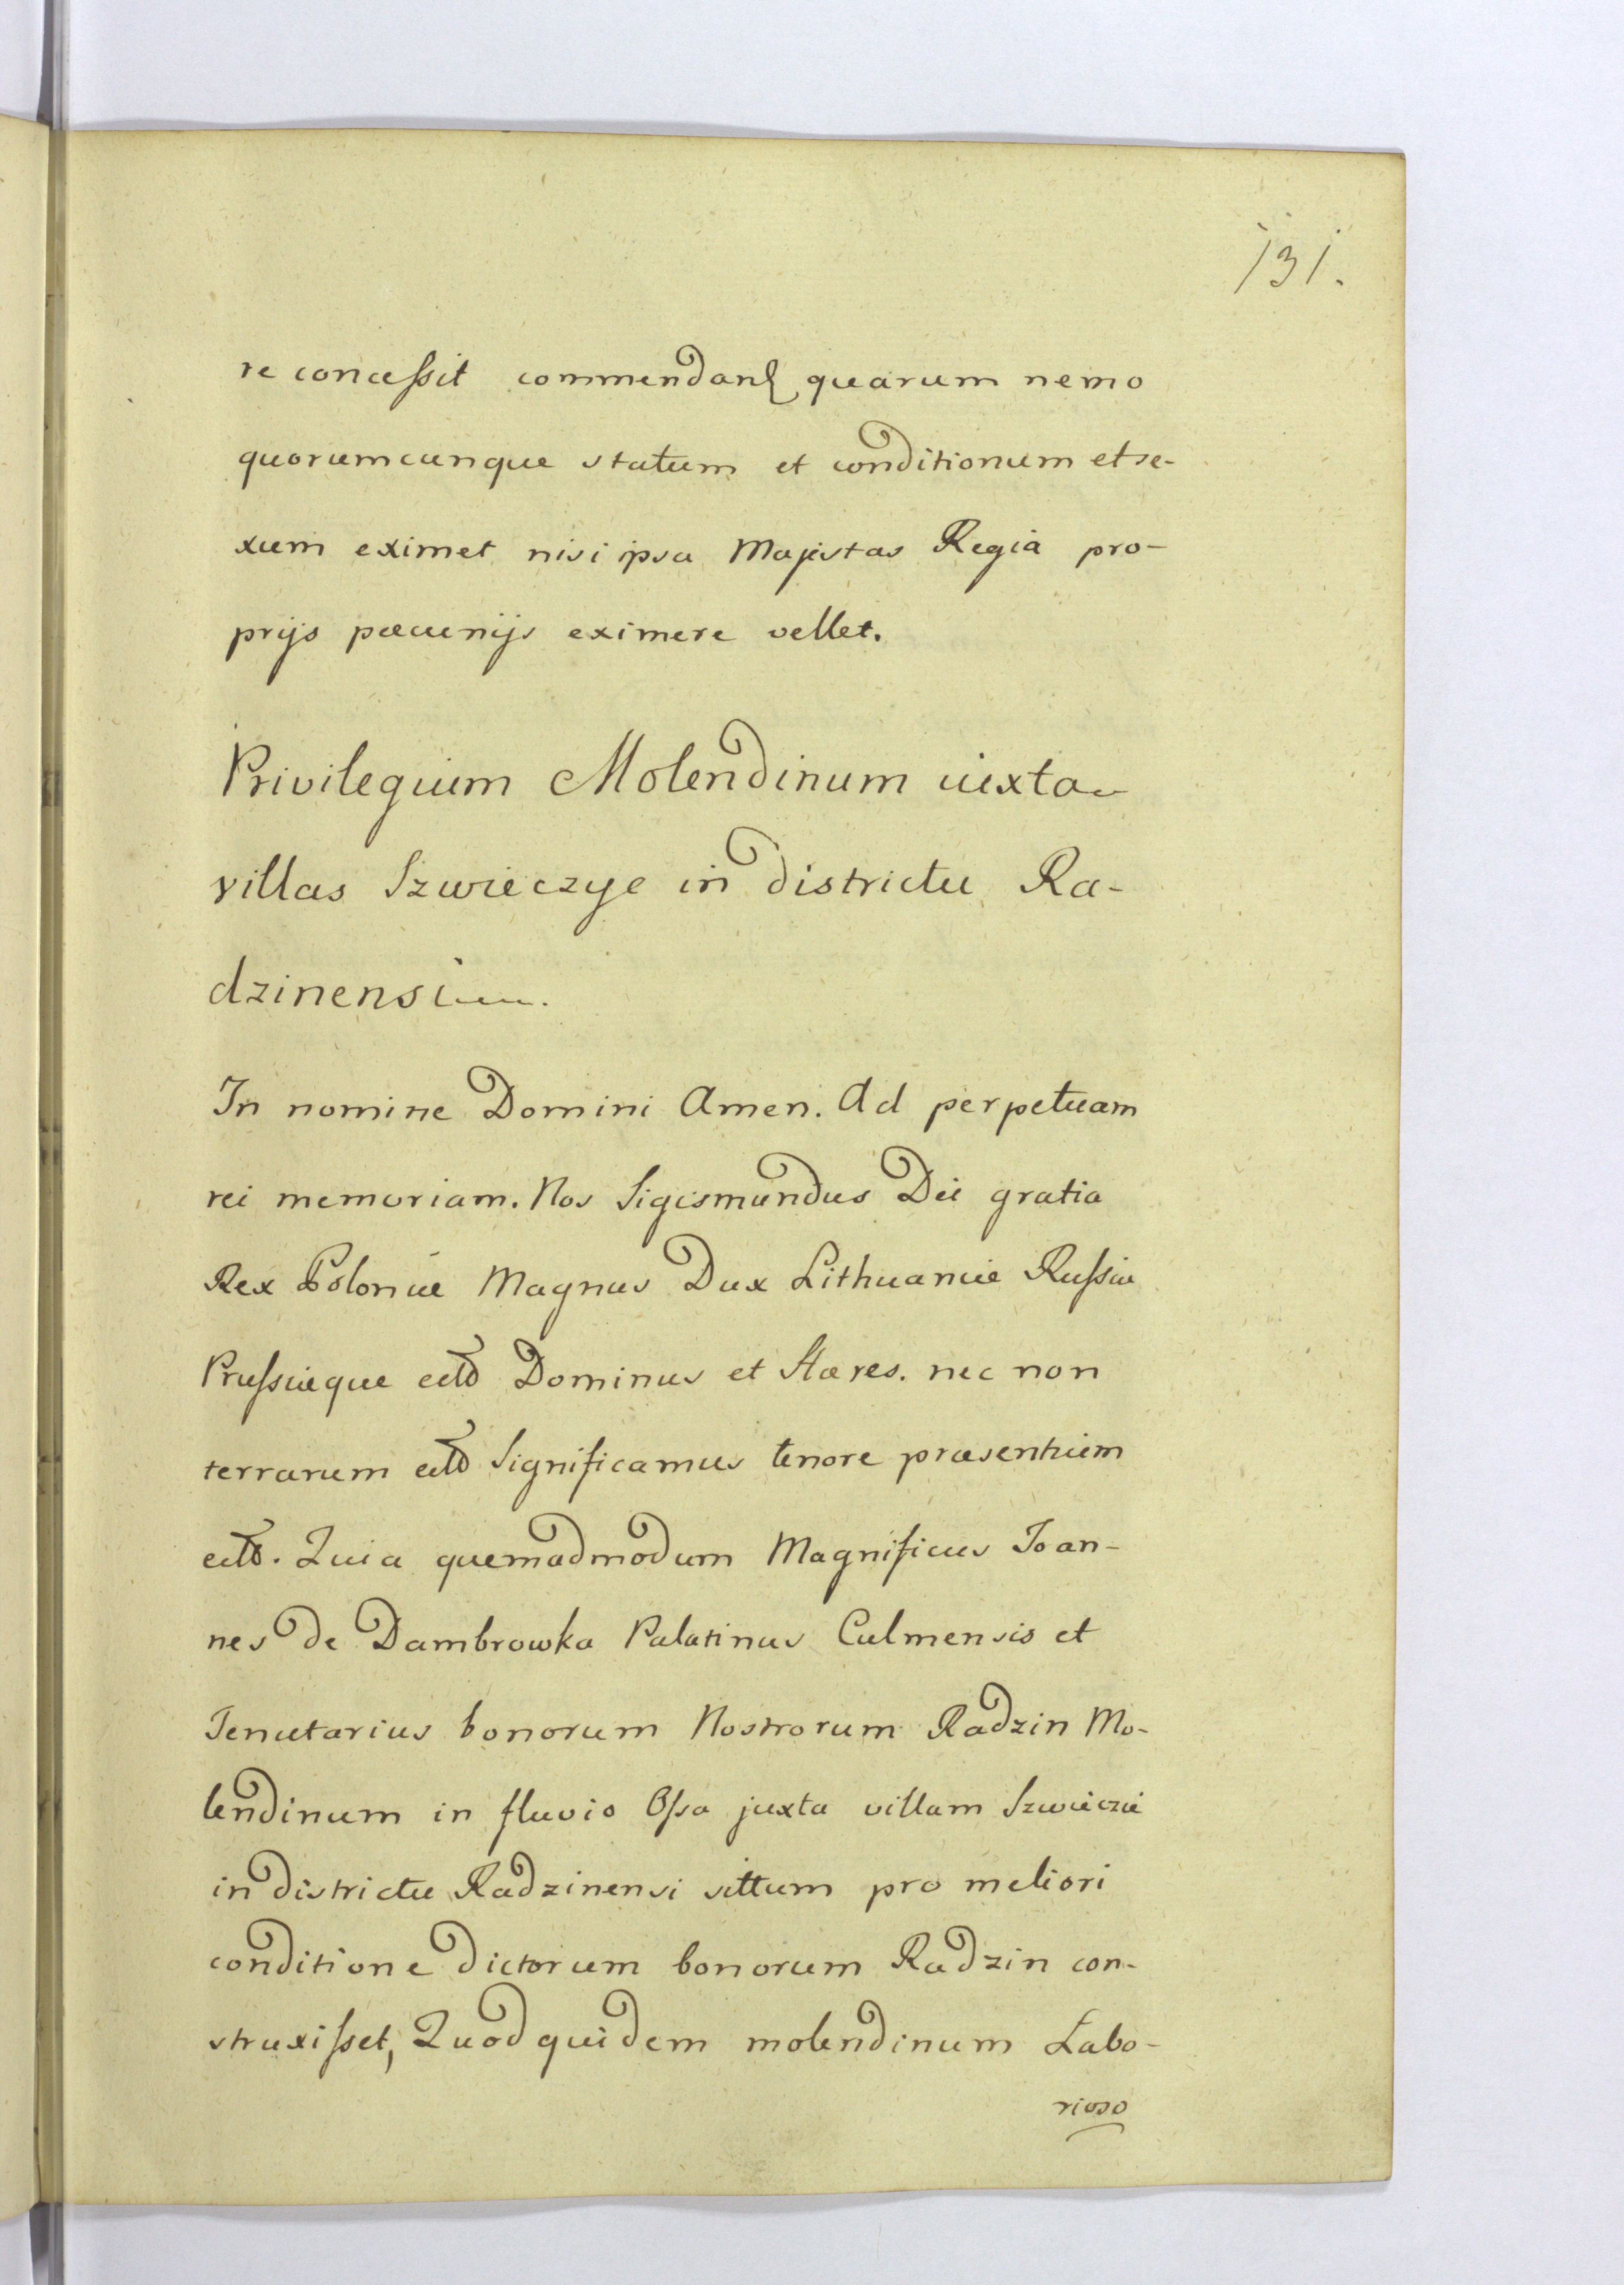 131.
re concessit commendan quarum nemo
quorumcunque statum et conditionum et se-
xum eximet nisi ipsa Majestas Regia pro-
prijs pæcunijs eximere vellet.
Privilegium Molendinum iuxta
villas Szwieczye in districtu Ra-
dzinensi.
In nomine Domini Amen. Ad perpetuam
rei memoriam. Nos Sigismundus Dei gratia
Rex Poloniæ Magnus Dux Lithuaniæ Russiæ
Prussiæque ectt Dominus et Hæres. nec non
terrarum ectt Significamus tenore præsentium
ectt. Quia quemadmodum Magnificus Joan-
nes de Dambrowka Palatinus Culmensis et
Tenutarius bonorum Nostrorum Radzin Mo-
lendinum in fluvio Ossa juxta villam Szwieczie
in districtu Radzinensi sittum pro meliori
conditione dictorum bonorum Radzin con-
struxisset, Quod quidem molendinum Labo-
rioso